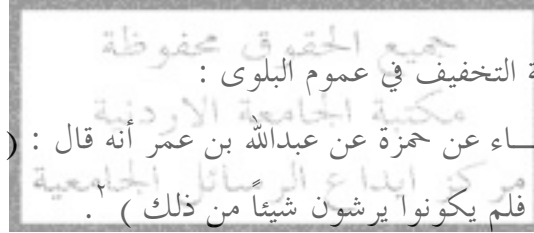 جميع الحقوق محفوظة
ة التخفيف في عموم البلوى :
مكتبة الجامعة الاردنية
ـــاء عن حمزة عن عبدالله بن عمر أنه قال : (
مركز ايداع الرسائل الجامعية
فلم يكونوا يرشون شيئاً من ذلك ) ٢.